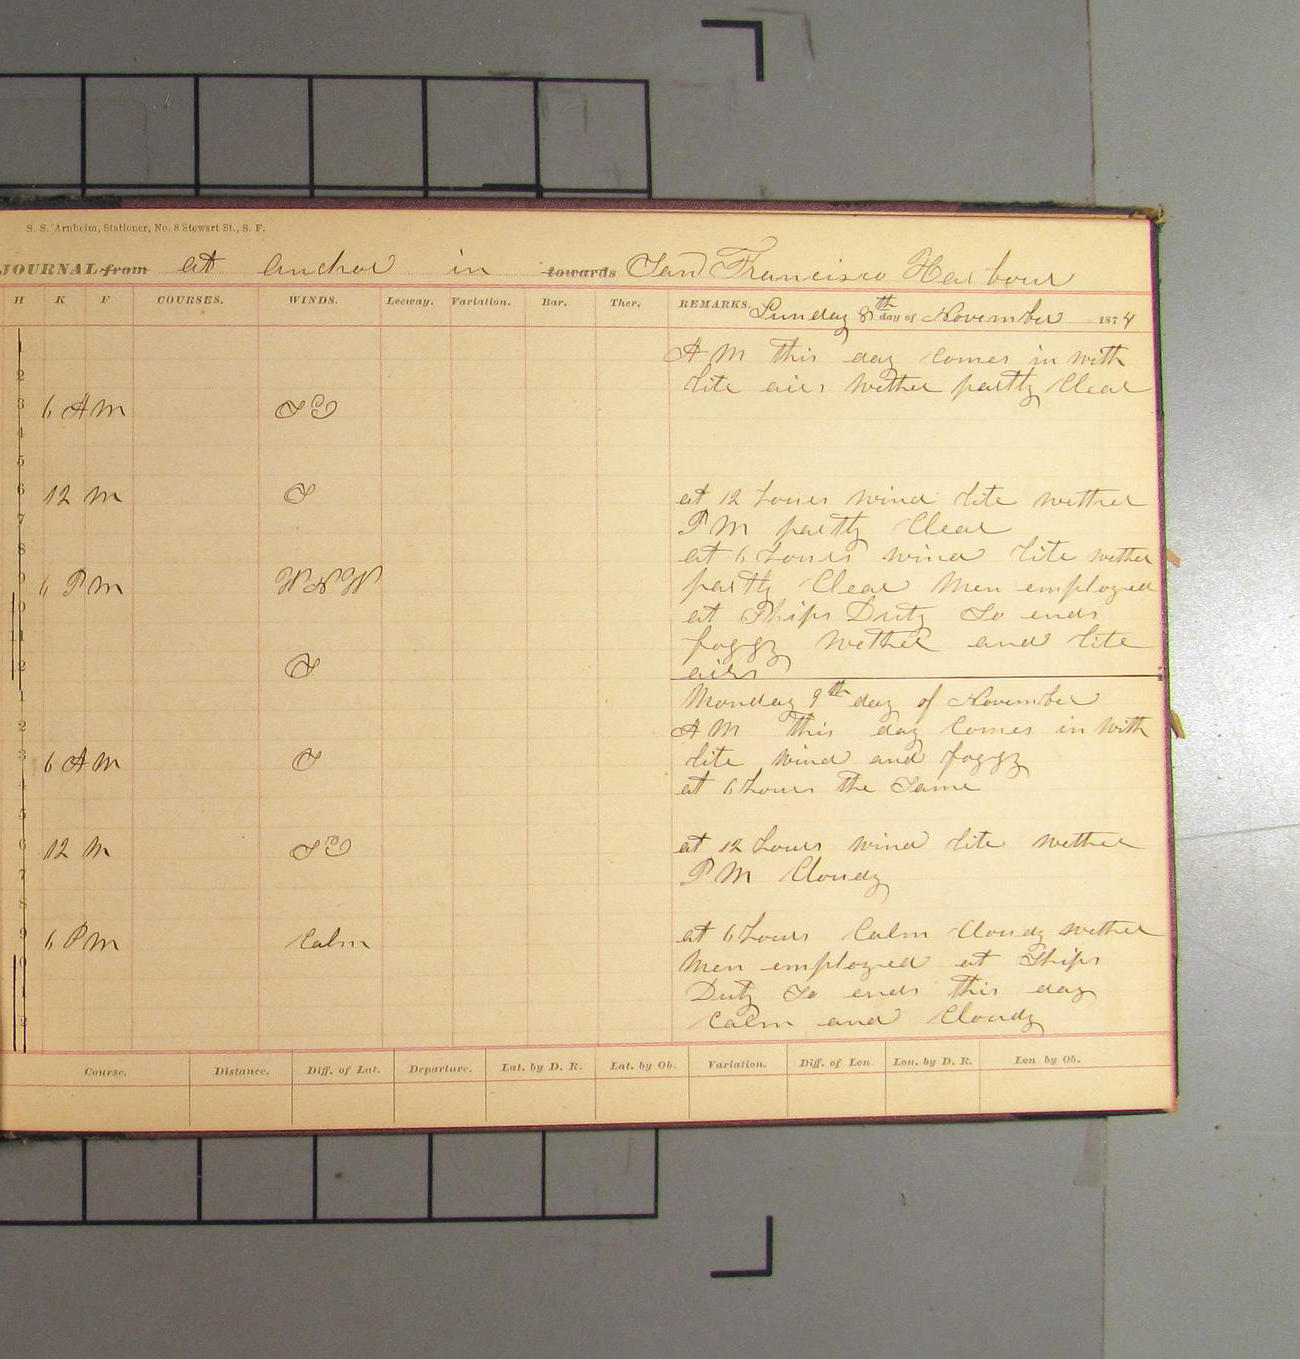 S. S. Arnheim, Stationer, No. 8 Stewart St., S. F.
JOURNAL from at anchor in towards San Francisco Harbour
H K F COURSES. WINDS. Leeway. Variation. Bar. Ther. REMARKS. Sunday 8th day of November 1874
1
A M this day comes in with
2
lite airs wether partly Clear
3 6 A M SE
4
5
6 12 M S at 12 hours wind lite wether
7 P M partly Clear
8 at 6 hours wind lite wether
9 6 P M WNW partly Clear Men employed
10 at Ships Duty So ends
11 foggy wether and lite
12 S airs
1 Monday 9th day of November
2 A M this day Comes in with
3 6 A M S lite wind and foggy
4 at 6 hours the Same
5
6 12 M SE at 12 hours wind lite wether
7 P M Cloudy
8
9 6 P M Calm at 6 hours Calm Cloudy wether
10 Men employed at Ships
11 Duty So ends this day
12 Calm and Cloudy
Course. Distance. Diff. of Lat. Departure. Lat. by D. R. Lat. by Ob. Variation. Diff. of Lon. Lon. by D. R. Lon by Ob.